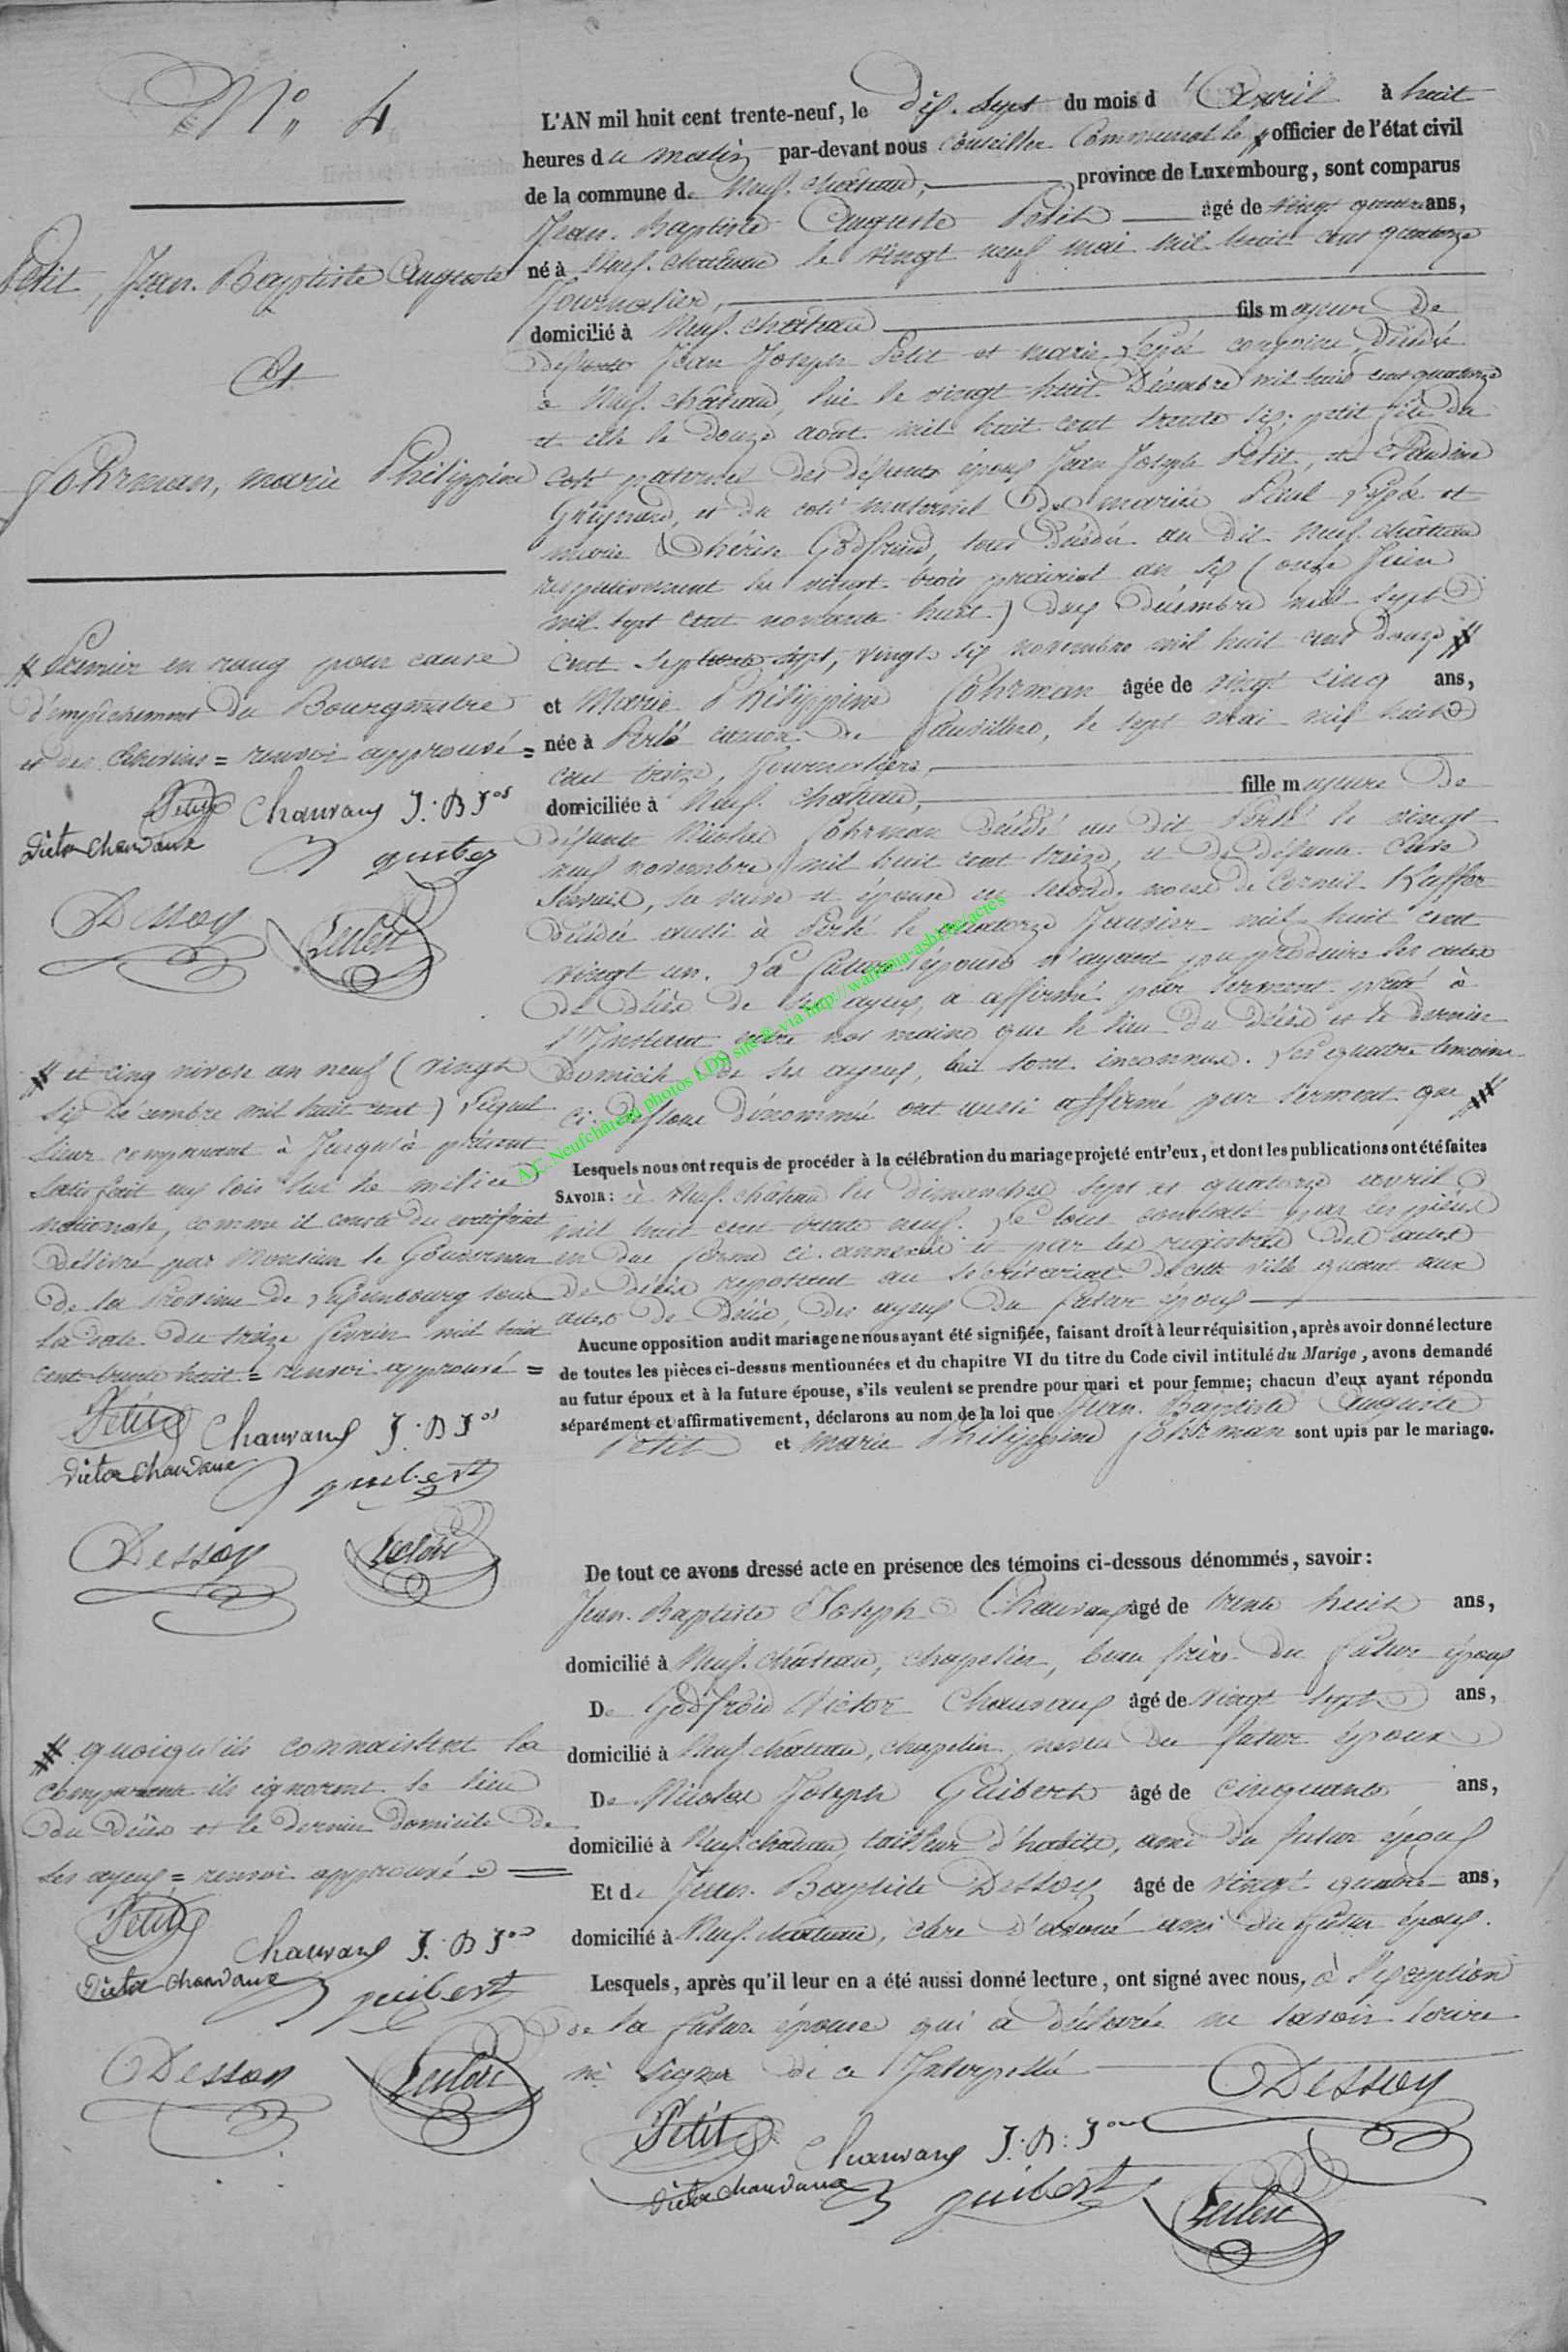 N° 4
Petit, Jean-Baptiste Auguste
Et
Fohrman, marie Philippine
# Premier en rang pour cause
d'empêchement du Bourgmestre
et des Echevins = renvoi approuvé =
Petit Chauvaux J:B Jos
Victor Chauvaux
guibert
Dessoy
# et cinq nivose an neuf (vingt
six décembre mil huit cent) Lequel
Sieur comparant à Jusqu'à présent
Satisfait aux lois sur la milice
nationale, comme il conste du certificat
délivré par Monsieur le Gouverneur
de la Province de Luxembourg sous
la date du treize février mil huit
cent trente huit = renvoi approuvé =
Petit Chauvaux J:B Jos
Victor Chauvaux
guibert
Dessoy
# quoiqu'ils connaissent la
comparante ils ignorent le lieu
du décès et le dernier domicile de
ses ayeux = renvoi approuvé =
Petit Chauvaux J:B Jos
Victor Chauvaux
guibert
Dessoy
L'AN mil huit cent trente-neuf, le dix-sept du mois d'Avril à huit
heures du matin par-devant nous Conseiller Communal le # officier de l'état civil
de la commune de Neuf-château, province de Luxembourg, sont comparus
Jean-Baptiste Auguste Petit âgé de vingt quatre ans,
né à Neuf-château le vingt neuf mai mil huit cent quatorze
Journalier,
domicilié à Neuf-château fils mayeur de
défunts Jean Joseph Petit et marie conjoints, décédés
à Neuf-château, lui le vingt huit Décembre mil huit cent quatorze
et elle le douze aout mil huit cent trente six; petit fils du
coté paternel des défunts époux Jean Joseph Petit, et Claudine
Grignard, et du coté maternel de mariés Paul et
marie Thérèse Godfrind, tous décédés au dit Neuf-château
respectivement les vingt trois prairial an six (onze Juin
mil sept cent nonante huit) deux décembre mil sept
cent septante sept, vingt six novembre mil huit cent douze #
et Marie Philippine Fohrman âgée de vingt cinq ans,
née à Perlé canton de Fauvillers, le sept mai mil huit
cent treize, Journalière,
domiciliée à Neuf-château, fille mayeure de
défunts Nicolas Fohrman décédé au dit Perlé le vingt
neuf novembre mil huit cent treize, et de défunte
Servais, sa veuve et épouse en secondes noces de Corneil
décédée aussi à Perlé le quatorze Janvier mil huit cent
vingt un. La future épouse n'ayant pu produire les actes
de décès de ses ayeux, a affirmé par serment prêté à
l'Instant entre nos mains que le lieu du décès et le dernier
domicile de ses ayeux, lui sont inconnus. Les quatre témoins
ci-dessous dénommés ont aussi affirmé par serment que #
A.C. Neufchâteau photos LDS site © via http://wallonia-asbl.be/actes
Lesquels nous ont requis de procéder à la célébration du mariage projeté entr'eux, et dont les publications ont été faites
SAVOIR: à Neuf-château les dimanches sept et quatorze avril
mil huit cent trente neuf. Le tout constaté par les pièces
en due forme ci-annexées et par les registres des actes
de décès reposant au secrétariat de cette ville quant aux
actes de décès, des ayeux du futur époux
Aucune opposition audit mariage ne nous ayant été signifiée, faisant droit à leur réquisition, après avoir donné lecture
de toutes les pièces ci-dessus mentionnées et du chapitre VI du titre du Code civil intitulé du Marige, avons demandé
au futur époux et à la future épouse, s'ils veulent se prendre pour mari et pour femme; chacun d'eux ayant répondu
séparément et affirmativement, déclarons au nom de la loi que Jean-Baptiste Auguste
Petit et Marie Philippine Fohrman sont unis par le mariage.
De tout ce avons dressé acte en présence des témoins ci-dessous dénommés, savoir:
Jean-Baptiste Joseph Chauvaux âgé de trente huit ans,
domicilié à Neuf-château, chapelier, beau frère du futur époux
De Godfroid Victor Chauvaux âgé de vingt sept ans,
domicilié à Neuf-château, chapelier, neveu du futur époux
De Nicolas Joseph Guibert âgé de cinquante ans,
domicilié à Neuf-château, tailleur d'habits, ami du futur époux
Et de Jean-Baptiste Dessoy âgé de vingt quatre ans,
domicilié à Neuf-château, clerc d'avoué ami du futur époux.
Lesquels, après qu'il leur en a été aussi donné lecture, ont signé avec nous, à l'exception
de la future épouse qui a déclarée ne savoir écrire
ni signer de ce Interpellée
Dessoy
Petit Chauvaux J:B: Jos
Victor Chauvaux guibert